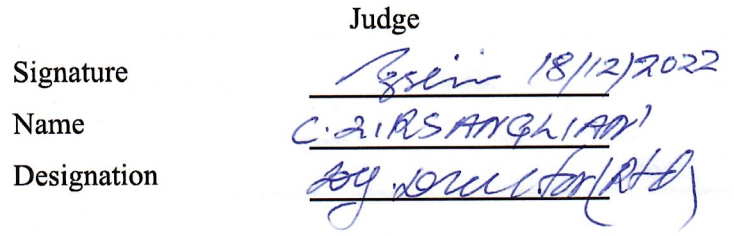 Judge
Signature 18/12/2022
Name C. ZIRSANGLIANI
Designation Dy. Director (Rtd)